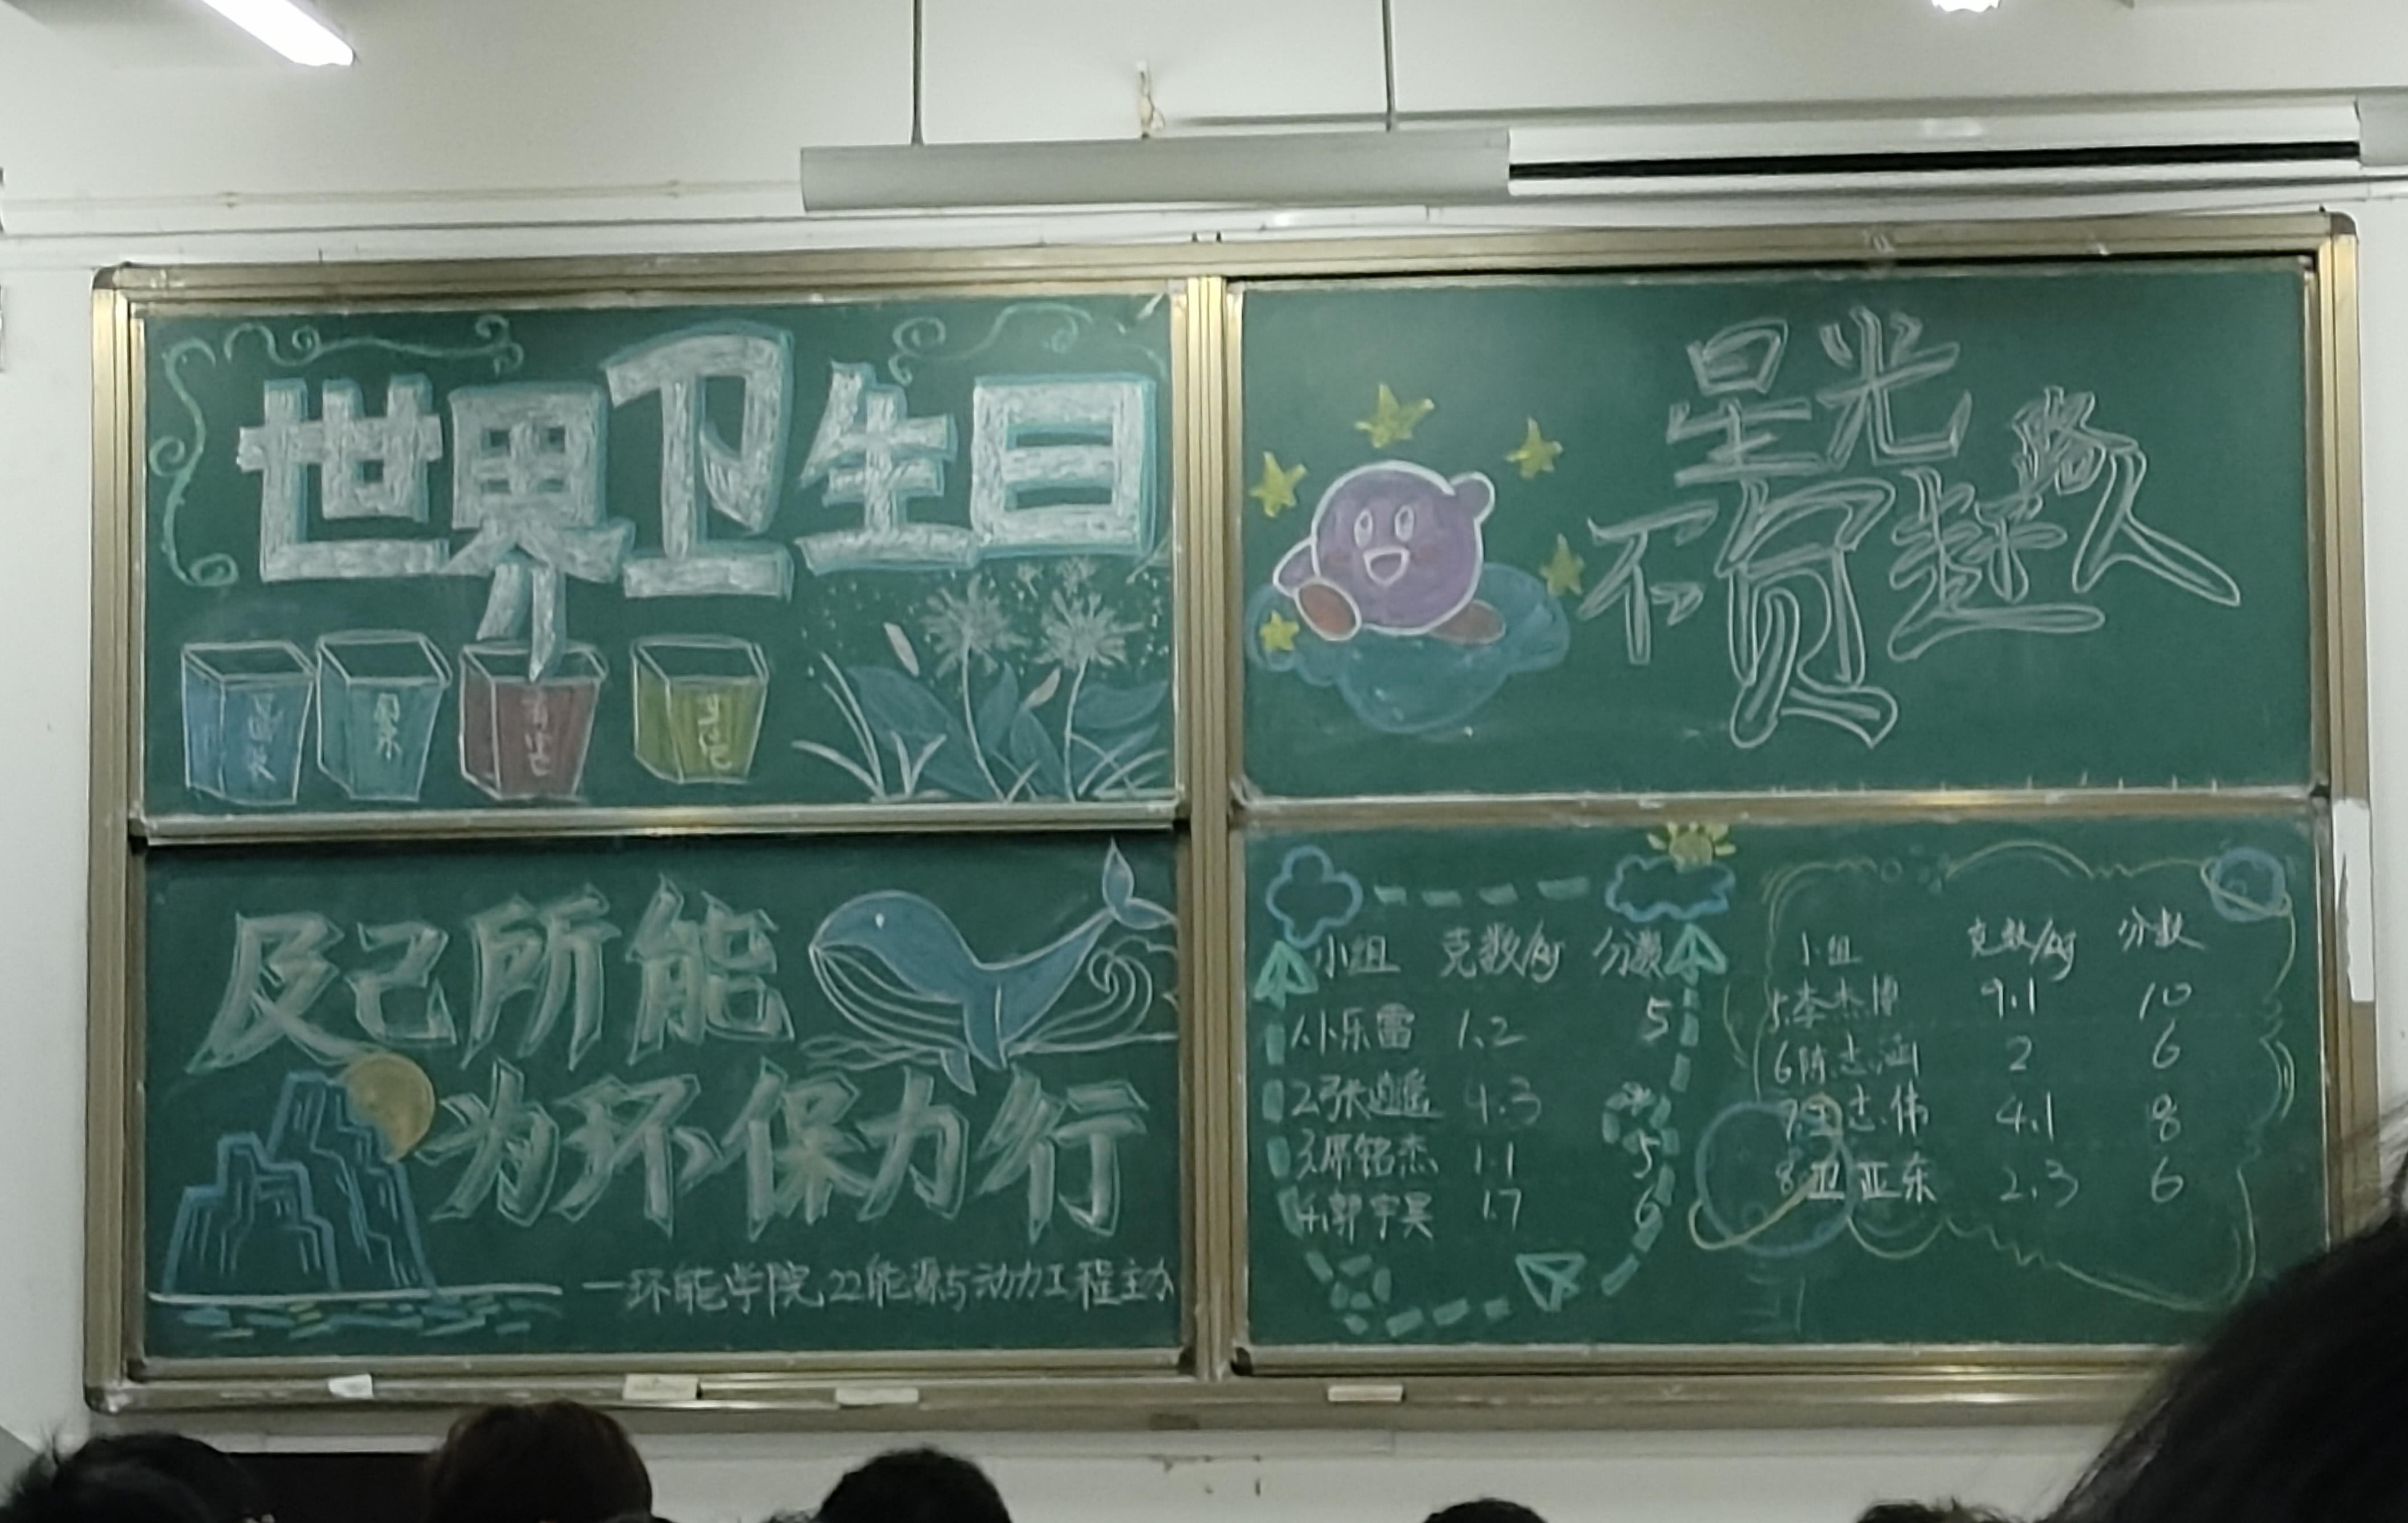 世界卫生日
星光
不负赶路人
及己所能
为环保力行
一环能学院22能源与动力工程主办
小组 克数/kg 分数
1.小乐雷 1.2 5
2张逍遥 4.3
3.席铭杰 1.1 5
4.郭宇昊 1.7 6
小组 克数/kg 分数
5.李杰博 9.1 10
6陈志涵 2 6
7.王志伟 4.1 8
8.卫亚东 2.3 6